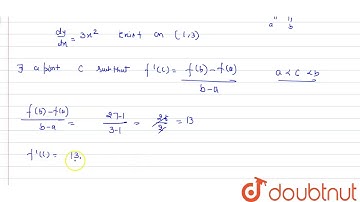 a'' b''
dy/dx = 3x² exist on (1,3)
∃ a point C such that f'(c) = f(b) - f(a) / b-a a < c < b
f(b) - f(a) / b-a = 27-1 / 3-1 = 26 / 2 = 13
f'(c) = 13.
doubtnut